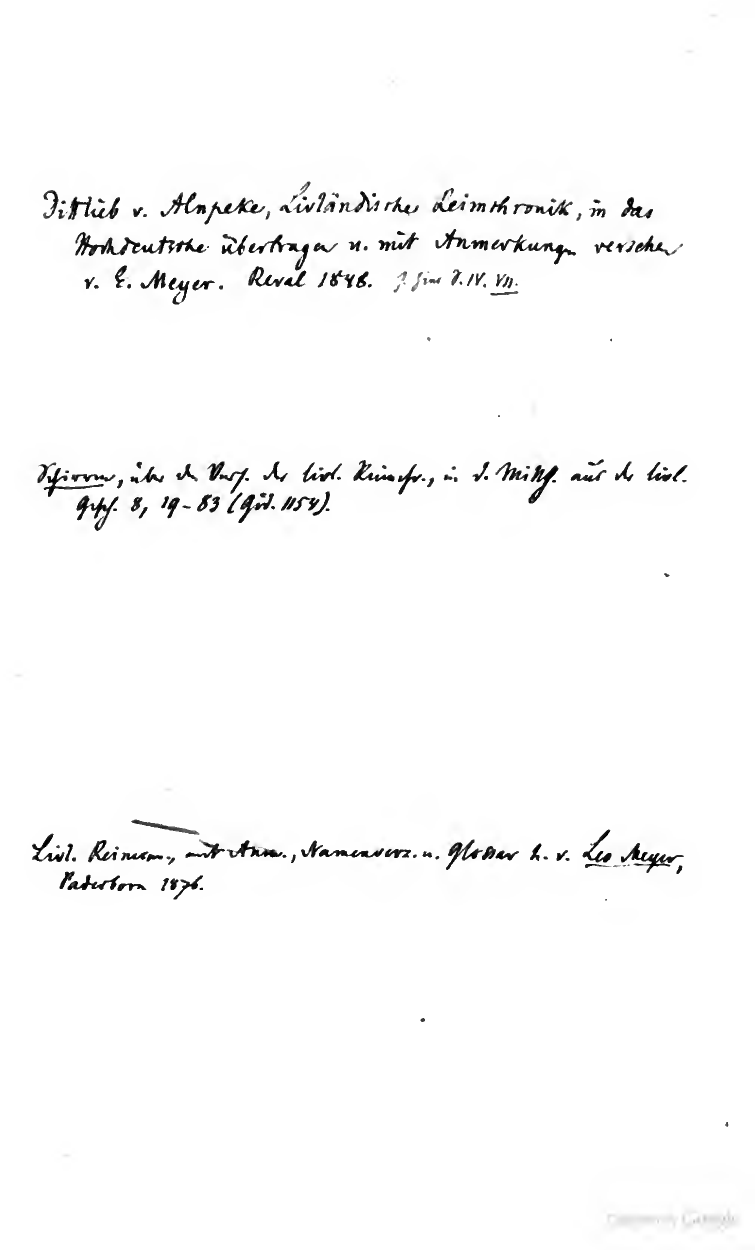 Ditlieb v. Alnpeke, Livländische Reimchronik, in das
Hochdeutsche übertragen u. mit Anmerkungen versehen
v. E. Meyer. Reval 1848. IV. VII.
Schirren, über den Verf. der livl. Reimchr., in d. Mitth. aus der livl.
Gesch. 8, 19-83 (Göd. 1154).
Livl. Reimchr., mit Anm., Namenverz. u. Glossar h. v. Leo Meyer,
Paderborn 1876.
Google